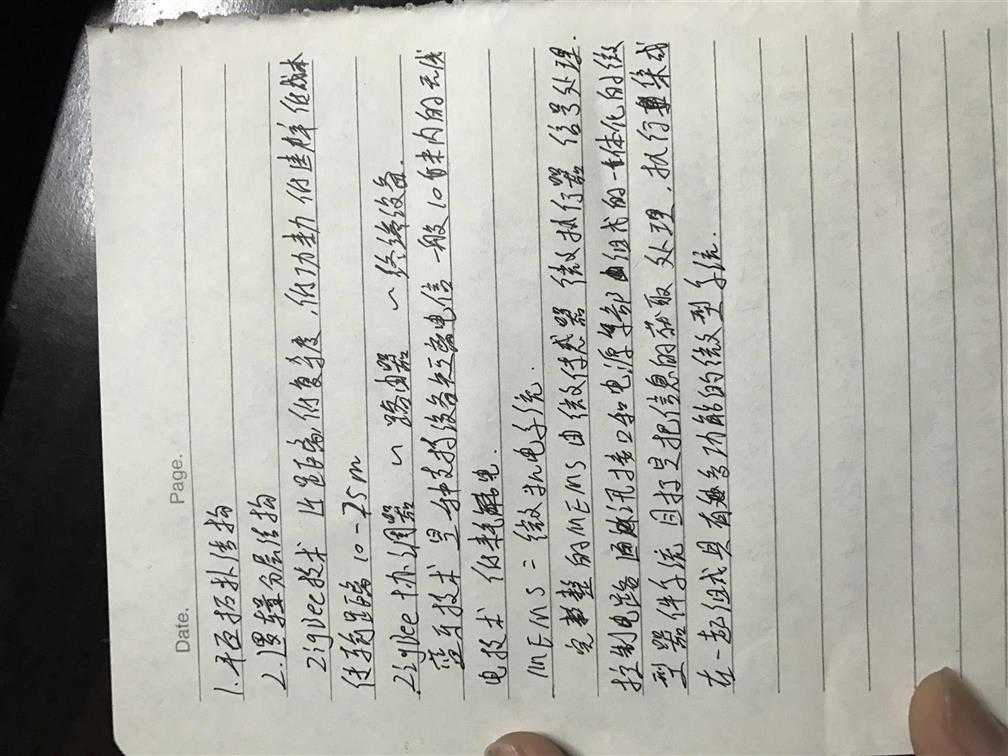 Date. Page.
1.平面拓扑结构
2.逻辑分层结构
Zigbee技术 近距离低复杂度,低功耗 低速率低成本
传输距离 10-75m
Zigbee协调器 ~路由器 ~终端设备.
蓝牙技术 是一种支持设备短距离电信 一般10米内的无线
电技术 低耗电.
MEMS = 微机电系统.
完整的MEMS由微传感器 微执行器 信号处理.
控制电路 通讯接口和电源等部组成的一体化的微
型器件系统 目打是把信息的获取 处理,执行集成
在一起组成具有多功能的微型系统.